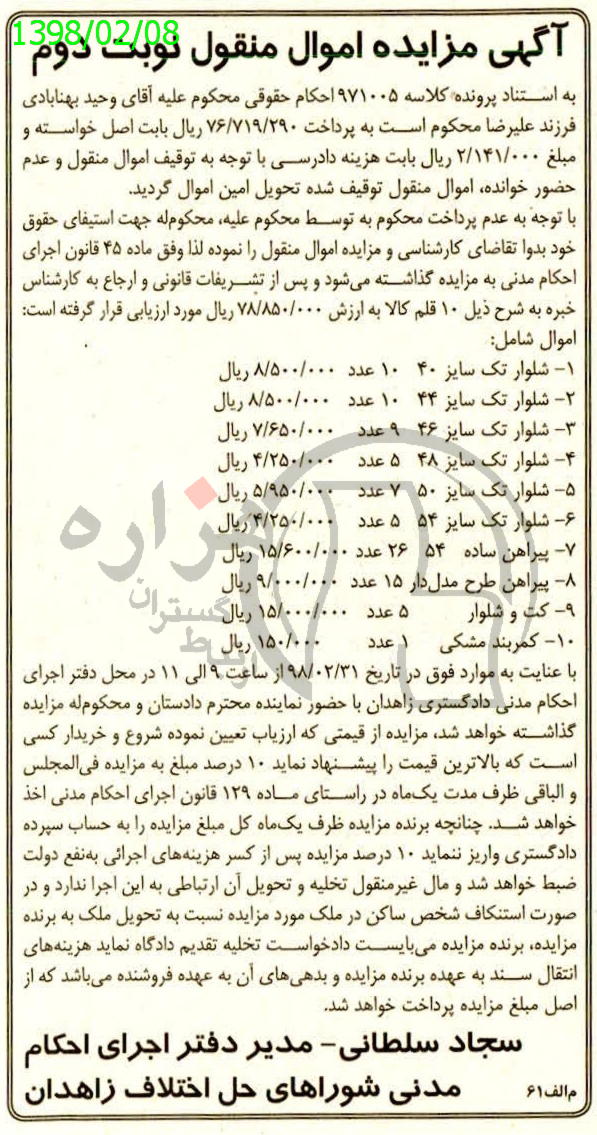 1398/02/08
آگهی مزایده اموال منقول نوبت دوم
به استناد پرونده کلاسه ۹۷۱۰۰۵ احکام حقوقی محکوم علیه آقای وحید بهنابادی
فرزند علیرضا محکوم است به پرداخت ۷۶/۷۱۹/۲۹۰ ریال بابت اصل خواسته و
مبلغ ۲/۱۴۱/۰۰۰ ریال بابت هزینه دادرسی با توجه به توقیف اموال منقول و عدم
حضور خوانده، اموال منقول توقیف شده تحویل امین اموال گردید.
با توجه به عدم پرداخت محکوم به توسط محکوم علیه، محکوم‌له جهت استیفای حقوق
خود بدوا تقاضای کارشناسی و مزایده اموال منقول را نموده لذا وفق ماده ۴۵ قانون اجرای
احکام مدنی به مزایده گذاشته می‌شود و پس از تشریفات قانونی و ارجاع به کارشناس
خبره به شرح ذیل ۱۰ قلم کالا به ارزش ۷۸/۸۵۰/۰۰۰ ریال مورد ارزیابی قرار گرفته است:
اموال شامل:
۱- شلوار تک سایز ۴۰ ۱۰ عدد ۸/۵۰۰/۰۰۰ ریال
۲- شلوار تک سایز ۴۴ ۱۰ عدد ۸/۵۰۰/۰۰۰ ریال
۳- شلوار تک سایز ۴۶ ۹ عدد ۷/۶۵۰/۰۰۰ ریال
۴- شلوار تک سایز ۴۸ ۵ عدد ۴/۲۵۰/۰۰۰ ریال
۵- شلوار تک سایز ۵۰ ۷ عدد ۵/۹۵۰/۰۰۰ ریال
۶- شلوار تک سایز ۵۴ ۵ عدد ۴/۲۵۰/۰۰۰ ریال
۷- پیراهن ساده ۵۴ ۲۶ عدد ۱۵/۶۰۰/۰۰۰ ریال
۸- پیراهن طرح مدل‌دار ۱۵ عدد ۹/۰۰۰/۰۰۰ ریال
۹- کت و شلوار ۵ عدد ۱۵/۰۰۰/۰۰۰ ریال
۱۰- کمربند مشکی ۱ عدد ۱۵۰/۰۰۰ ریال
با عنایت به موارد فوق در تاریخ ۹۸/۰۲/۳۱ از ساعت ۹ الی ۱۱ در محل دفتر اجرای
احکام مدنی دادگستری زاهدان با حضور نماینده محترم دادستان و محکوم‌له مزایده
گذاشته خواهد شد، مزایده از قیمتی که ارزیاب تعیین نموده شروع و خریدار کسی
است که بالاترین قیمت را پیشنهاد نماید ۱۰ درصد مبلغ به مزایده فی‌المجلس
و الباقی ظرف مدت یک‌ماه در راستای ماده ۱۲۹ قانون اجرای احکام مدنی اخذ
خواهد شد. چنانچه برنده مزایده ظرف یک‌ماه کل مبلغ مزایده را به حساب سپرده
دادگستری واریز ننماید ۱۰ درصد مزایده پس از کسر هزینه‌های اجرائی به‌نفع دولت
ضبط خواهد شد و مال غیرمنقول تخلیه و تحویل آن ارتباطی به این اجرا ندارد و در
صورت استنکاف شخص ساکن در ملک مورد مزایده نسبت به تحویل ملک به برنده
مزایده، برنده مزایده می‌بایست دادخواست تخلیه تقدیم دادگاه نماید هزینه‌های
انتقال سند به عهده برنده مزایده و بدهی‌های آن به عهده فروشنده می‌باشد که از
اصل مبلغ مزایده پرداخت خواهد شد.
سجاد سلطانی- مدیر دفتر اجرای احکام
مدنی شوراهای حل اختلاف زاهدان
م‌الف۶۱
هزاره
گستران
ارتباط